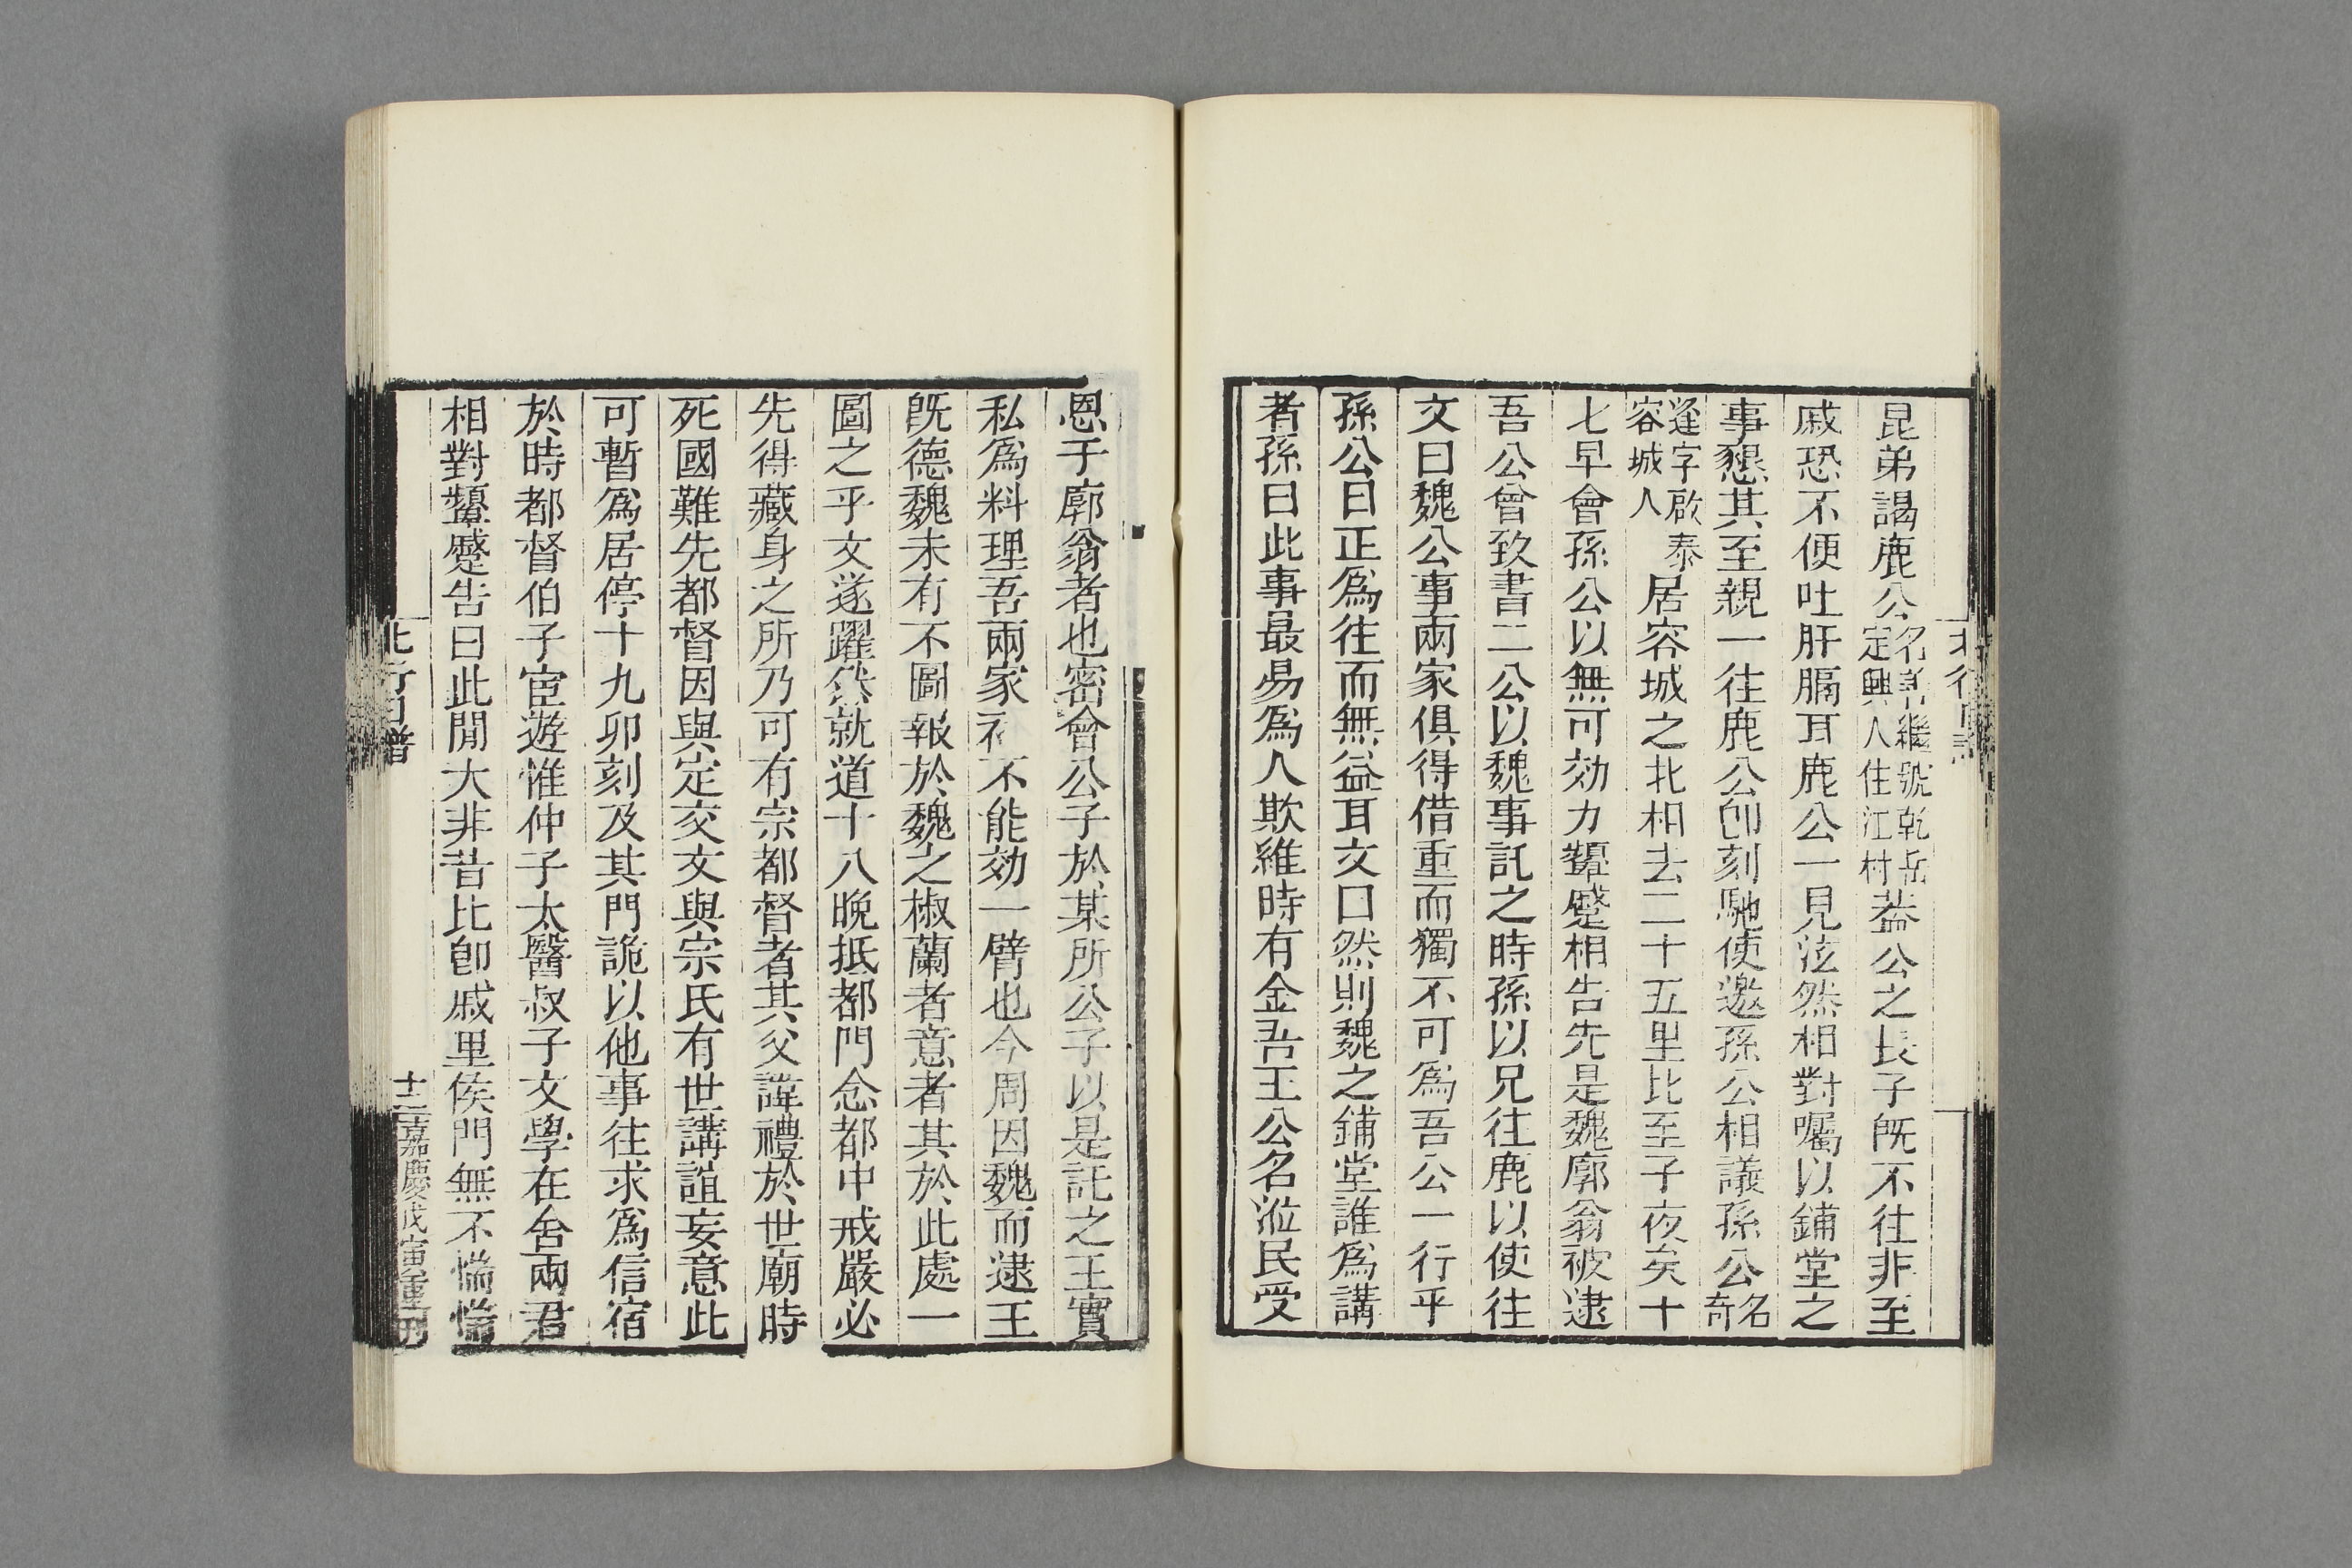 昆弟謁鹿公名善繼號乾岳定興人住江村葢公之長子旣不往非至
戚恐不便吐肝膈耳鹿公一見泫然相對囑以鋪堂之
事懇其至親一往鹿公卽刻馳使邀孫公相議孫公名奇
逢字啟泰容城人居容城之北相去二十五里比至子夜矣十
七早會孫公以無可効力顰蹙相告先是魏廓翁被逮
吾公曾致書二公以魏事託之時孫以兄往鹿以使往
文曰魏公事兩家俱得借重而獨不可爲吾公一行乎
孫公曰正爲往而無益耳文曰然則魏之鋪堂誰爲講
者孫曰此事最易爲人欺維時有金吾王公名涖民受
恩于廓翁者也密會公子於某所公子以是託之王實
私爲料理吾兩家不能効一臂也今周因魏而逮王
旣德魏未有不圖報於魏之椒蘭者意者其於此處一
圖之乎文遂躍然就道十八晚抵都門念都中戒嚴必
先得藏身之所乃可有宗都督者其父諱禮於世廟時
死國難先都督因與定交文與宗氏有世講誼妄意此
可暫爲居停十九卯刻及其門詭以他事往求爲信宿
於時都督伯子宦遊惟仲子太醫叔子文學在舍兩君
相對顰蹙告曰此閒大非昔比卽戚里侯門無不惴惴
北行日譜
十二嘉慶戊寅重刊